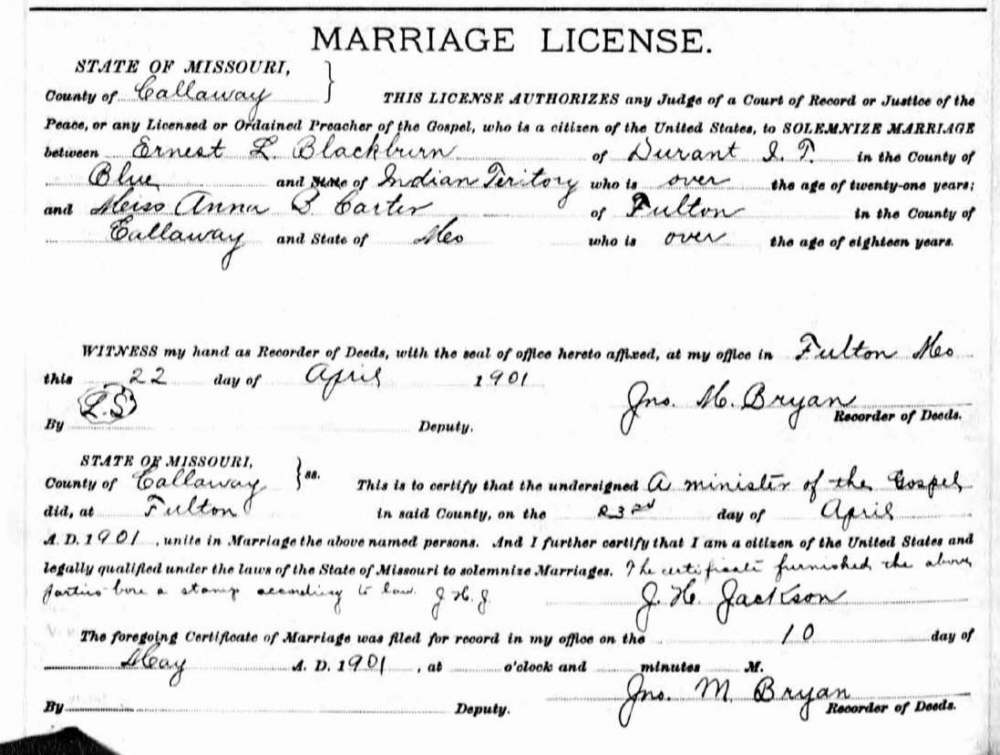 MARRIAGE LICENSE.
STATE OF MISSOURI,
County of Callaway } THIS LICENSE AUTHORIZES any Judge of a Court of Record or Justice of the
Peace, or any Licensed or Ordained Preacher of the Gospel, who is a citizen of the United States, to SOLEMNIZE MARRIAGE
between Ernest L. Blackburn of Durant I. T. in the County of
Blue and State of Indian Teritory who is over the age of twenty-one years;
and Miss Anna B. Carter of Fulton in the County of
Callaway and State of Mo who is over the age of eighteen years.
WITNESS my hand as Recorder of Deeds, with the seal of office hereto affixed, at my office in Fulton Mo
this 22 day of April 1901
L.S Jno. M. Bryan
By Deputy. Recorder of Deeds.
STATE OF MISSOURI,
County of Callaway } ss. This is to certify that the undersigned A minister of the Gospel
did, at Fulton in said County, on the 23rd day of April
A. D. 1901, unite in Marriage the above named persons. And I further certify that I am a citizen of the United States and
legally qualified under the laws of the State of Missouri to solemnize Marriages. The certificate furnished the above
parties bore a stamp according to law. J. H. J. J. H. Jackson
The foregoing Certificate of Marriage was filed for record in my office on the 10 day of
May A. D. 1901, at o'clock and minutes M.
Jno. M. Bryan
By Deputy. Recorder of Deeds.